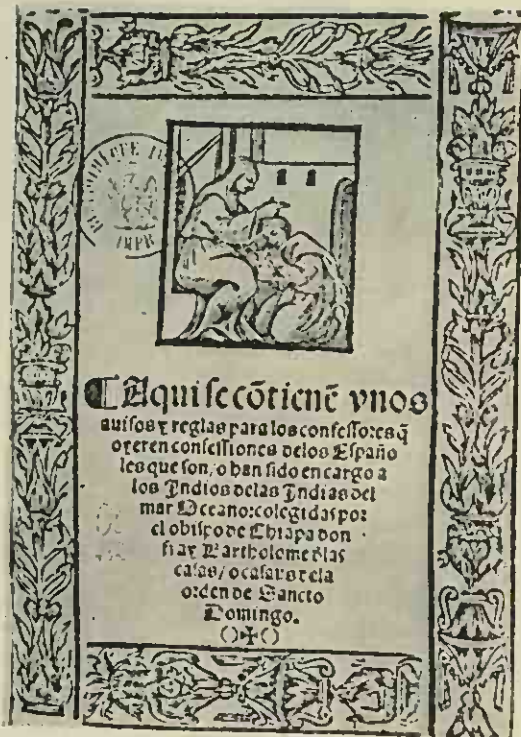 BIBLIOTHEQUE IMP
IMPR
¶ Aqui se cōtienē vnos
auisos ⁊ reglas para los confessores q̄
oyeren confessiones delos Españo
les que son / o han sido en cargo a
los Indios delas Indias del
mar Oceano: colegidas por
el obispo de Chiapa don
fray Bartholome d̄las
casas / o casaus dela
orden de Sancto
Domingo.